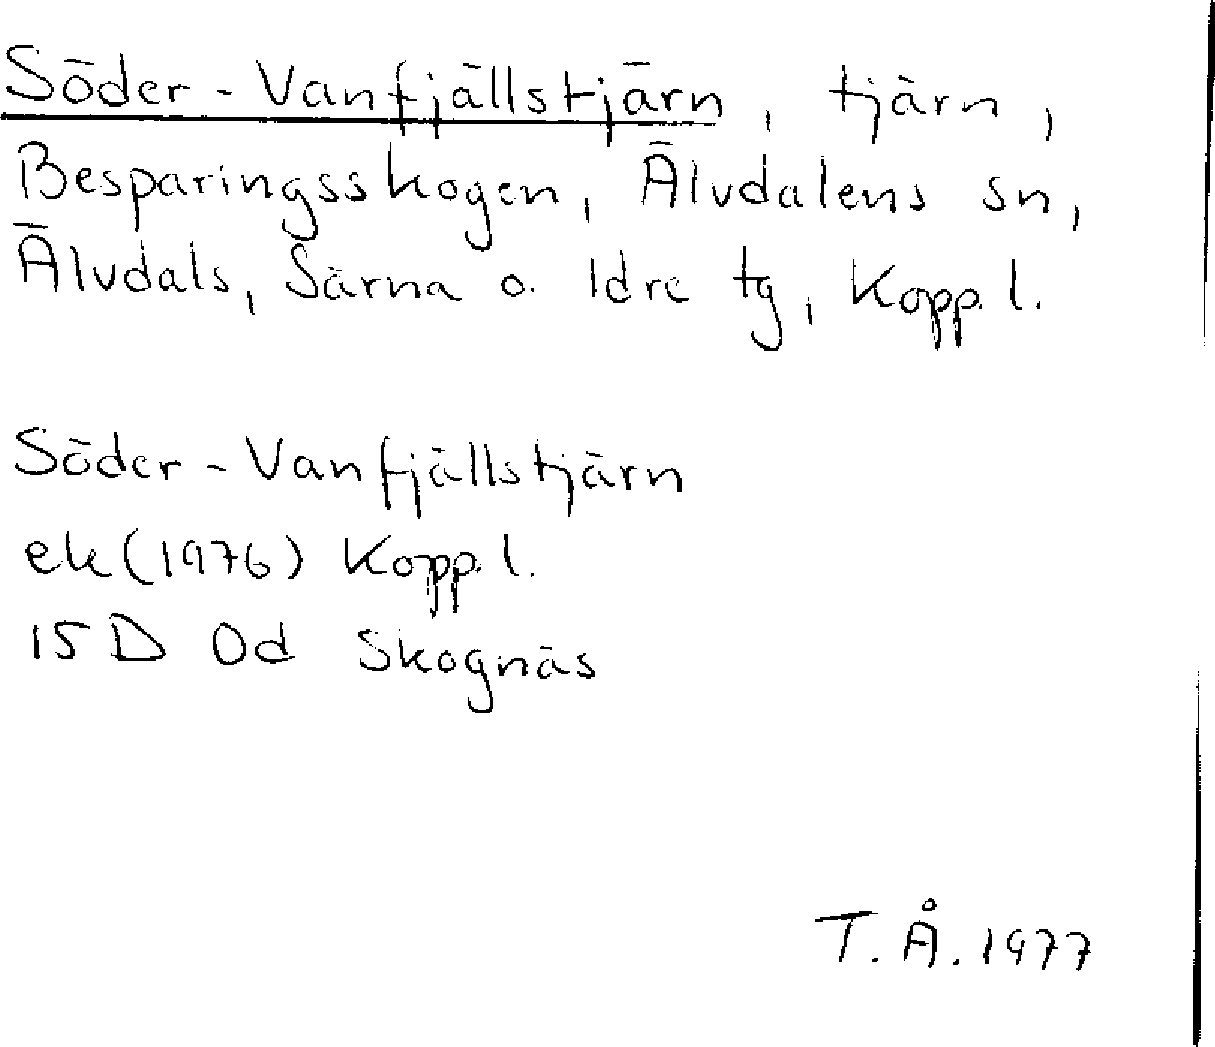 Söder-Vanfjällstjärn, tjärn,
Besparingsskogen, Älvdalens sn,
Älvdals, Särna o. Idre tg, Kopp.l.
Söder-Vanfjällstjärn
ek(1976) Kopp.l.
15D 0d Skognäs
T.Å.1977